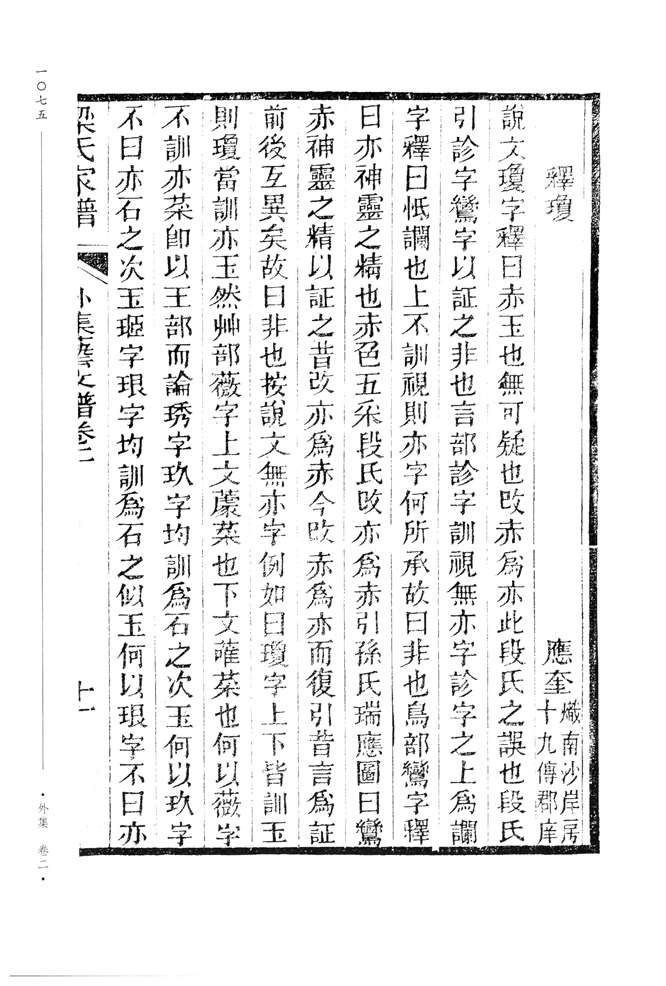 釋瓊
應奎 熾南沙岸房十九傳郡庠
說文瓊字釋曰赤玉也無可疑也改赤爲亦此段氏之誤也段氏
引診字鸞字以証之非也言部診字訓視無亦字診字之上爲讕
字釋曰怟讕也上不訓視則亦字何所承故曰非也鳥部鸞字釋
曰亦神靈之精也赤色五采段氏改亦爲赤引孫氏瑞應圖曰鸞
赤神靈之精以証之昔改亦爲赤今改赤爲亦而復引昔言爲証
前後互異矣故曰非也按說文無亦字例如曰瓊字上下皆訓玉
則瓊當訓亦玉然艸部薇字上文蘪菜也下文蓶菜也何以薇字
不訓亦菜卽以王部而論琇字玖字均訓爲石之次玉何以玖字
不曰亦石之次玉㻫字珢字均訓爲石之似玉何以珢字不曰亦
梁氏家譜 外集藝文譜卷二 十一
一〇七五
·外集 卷二·